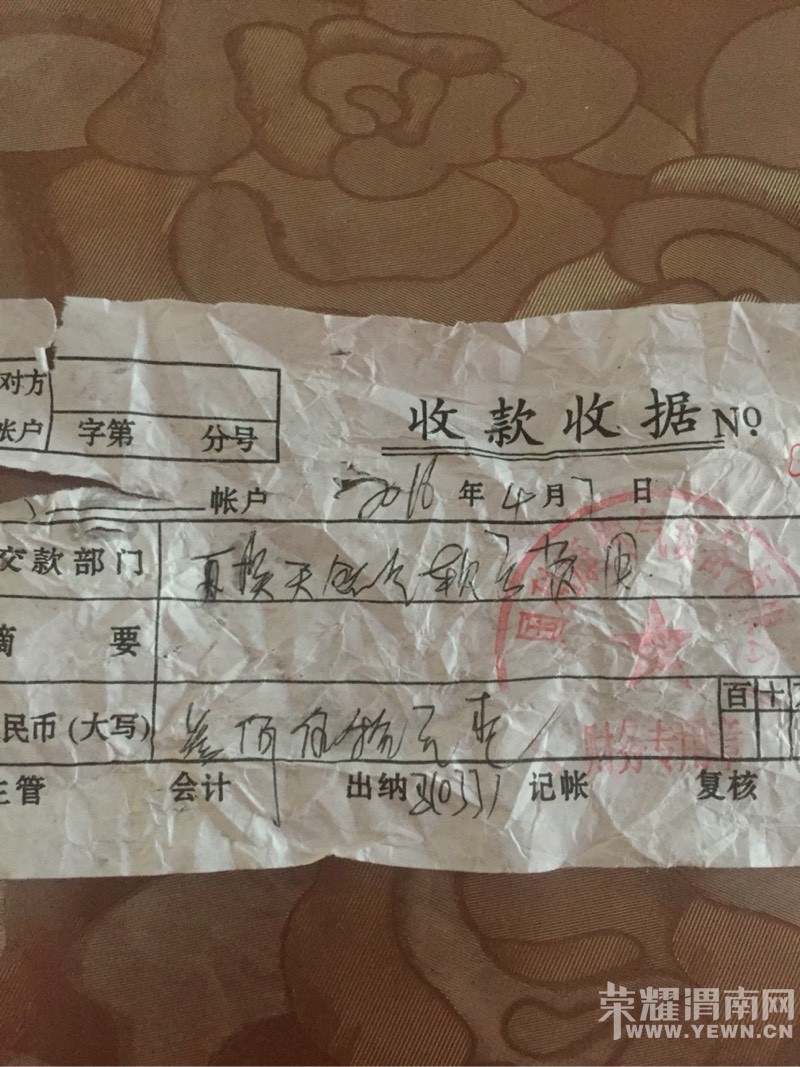 对方
帐户 字第 分号
收款收据 No
帐户 2016 年 4 月 7 日
交款部门 更换天然气软管费用
摘 要
民币(大写) 叁佰伍拾元整
百 十
主管 会计 出纳 310331 记帐 复核
财务专用章
荣耀渭南网
WWW.YEWN.CN